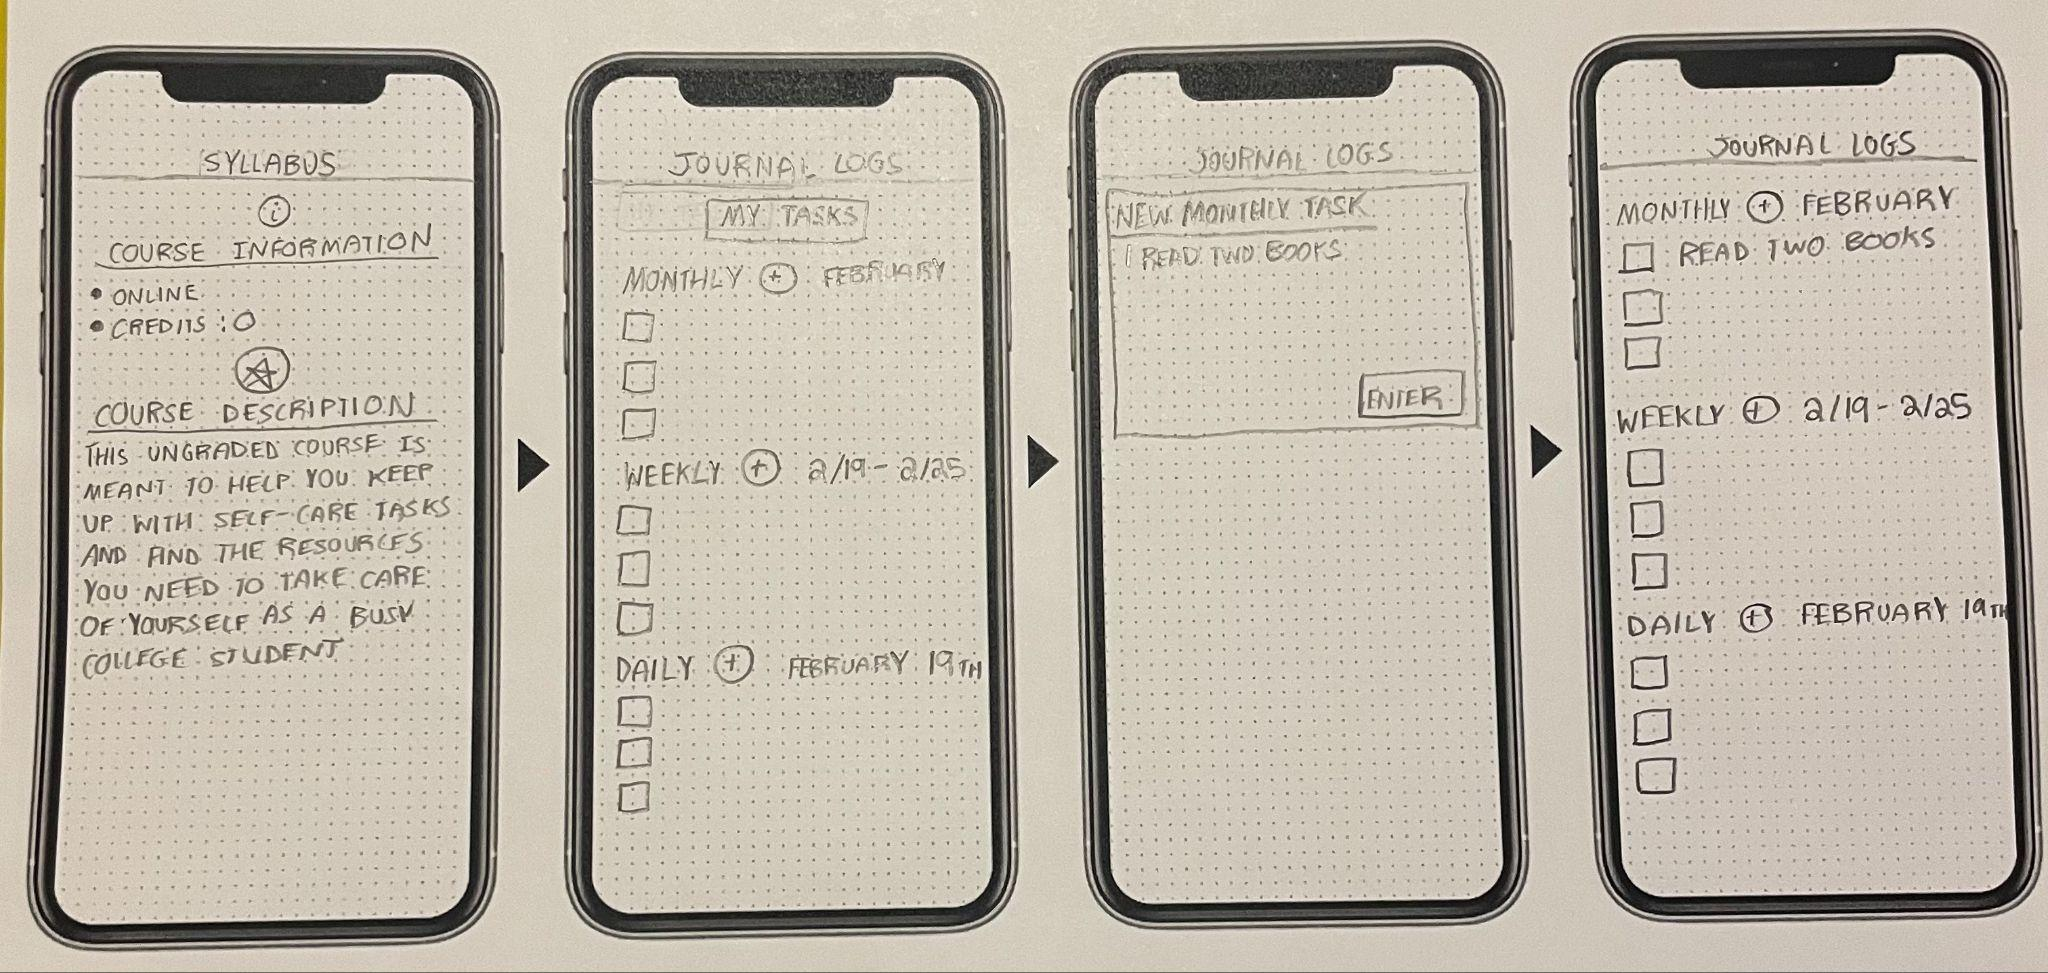 SYLLABUS
COURSE INFORMATION
• ONLINE
• CREDITS : 0
COURSE DESCRIPTION
THIS UNGRADED COURSE IS
MEANT TO HELP YOU KEEP
UP WITH SELF-CARE TASKS
AND FIND THE RESOURCES
YOU NEED TO TAKE CARE
OF YOURSELF AS A BUSY
COLLEGE STUDENT
JOURNAL LOGS
MY TASKS
MONTHLY + FEBRUARY
WEEKLY + 2/19 - 2/25
DAILY + FEBRUARY 19TH
JOURNAL LOGS
NEW MONTHLY TASK
READ TWO BOOKS
ENTER
JOURNAL LOGS
MONTHLY + FEBRUARY
READ TWO BOOKS
WEEKLY + 2/19 - 2/25
DAILY + FEBRUARY 19TH